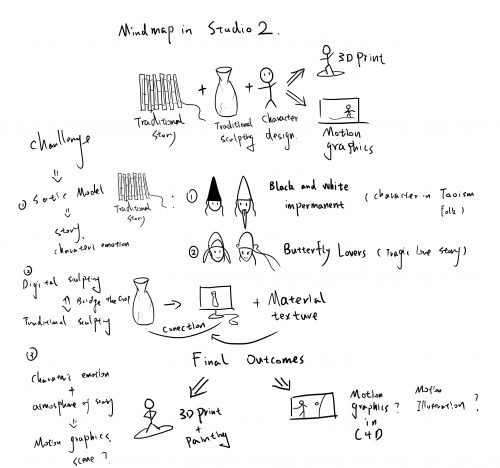 Mindmap in Studio 2.
Traditional story
+
Traditional sculpting
+
Character design.
3D print
Motion graphics
challenge
① Static Model
story.
character's emotion
Traditional story
:
① Black and White impermanent (character in Taoism Folk)
② Butterfly Lovers (Tragic love story)
②
Digital sculpting
Bridge the Gap
Traditional sculpting
conection
+ Material texture
③
Final Outcomes
Character's emotion
+
atmosphere of story
Motion graphics
scene ?
3D print
+
Painting
Motion graphics ?
in
C4D
Motion Illustration ?